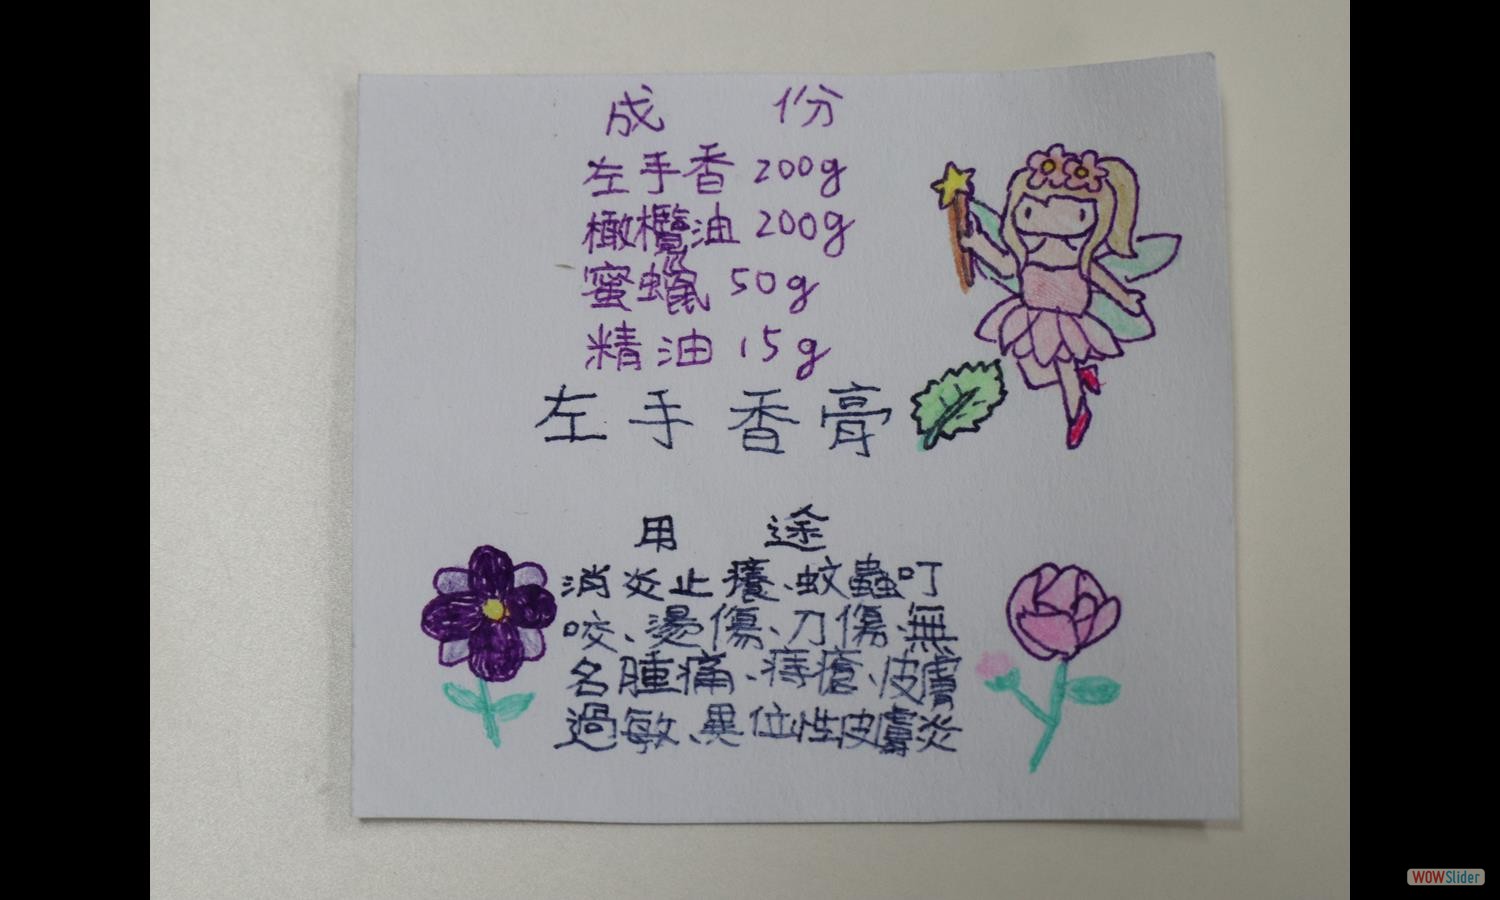 成 份
左手香 200g
橄欖油 200g
蜜蠟 50g
精油 15g
左手香膏
用 途
消炎止癢、蚊蟲叮
咬、燙傷、刀傷、無
名腫痛、痔瘡、皮膚
過敏、異位性皮膚炎
WOWSlider